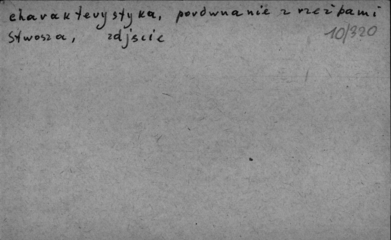 charakterystyka, porównanie z rzeźbami
Stwosza, zdjście
10/320